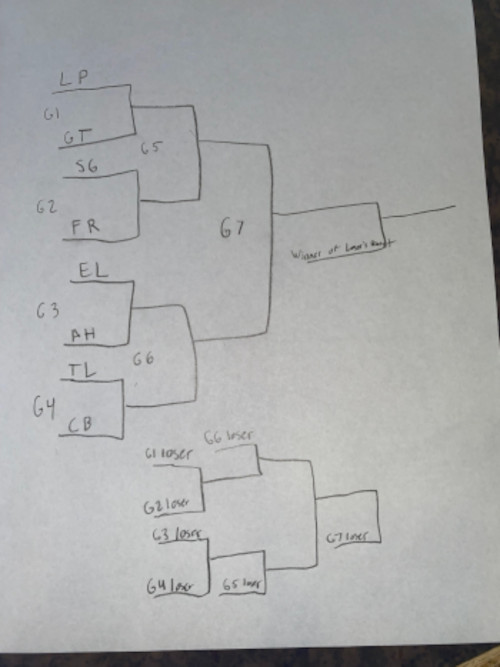 LP
G1
GT
G5
SG
G2
FR
G7
Winner of Loser's Bracket
EL
G3
AH
G6
TL
G4
CB
G6 loser
G1 loser
G2 loser
G3 loser
G7 loser
G4 loser
G5 loser